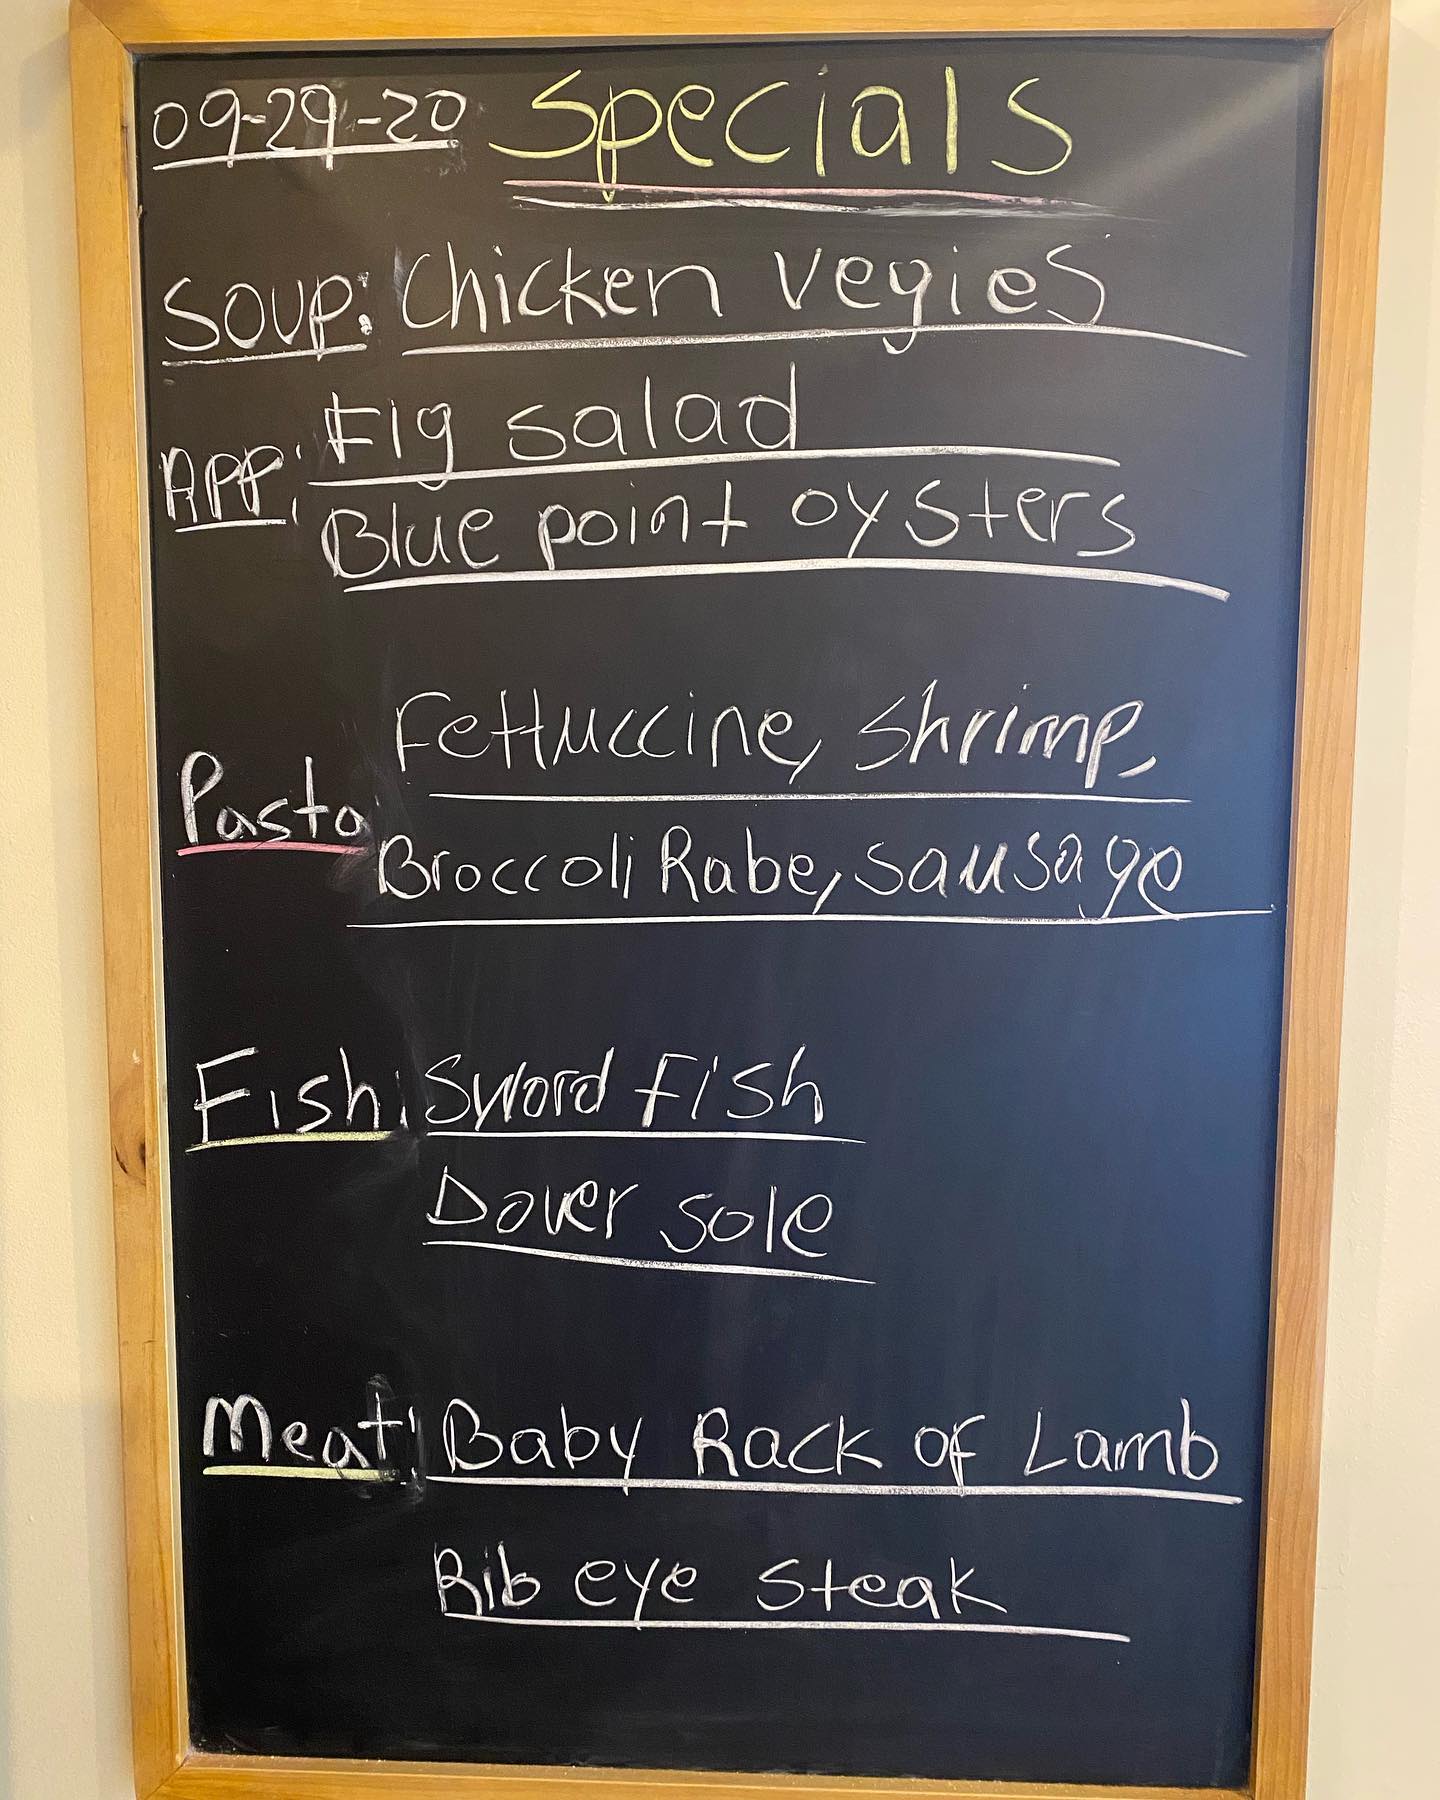 09-29-20 Specials
Soup: Chicken vegies
App: Fig salad
Blue point oysters
Fettuccine, shrimp,
Pasta:
Broccoli Rabe, sausage
Fish: Sword Fish
Dover sole
Meat: Baby Rack of Lamb
Rib eye steak